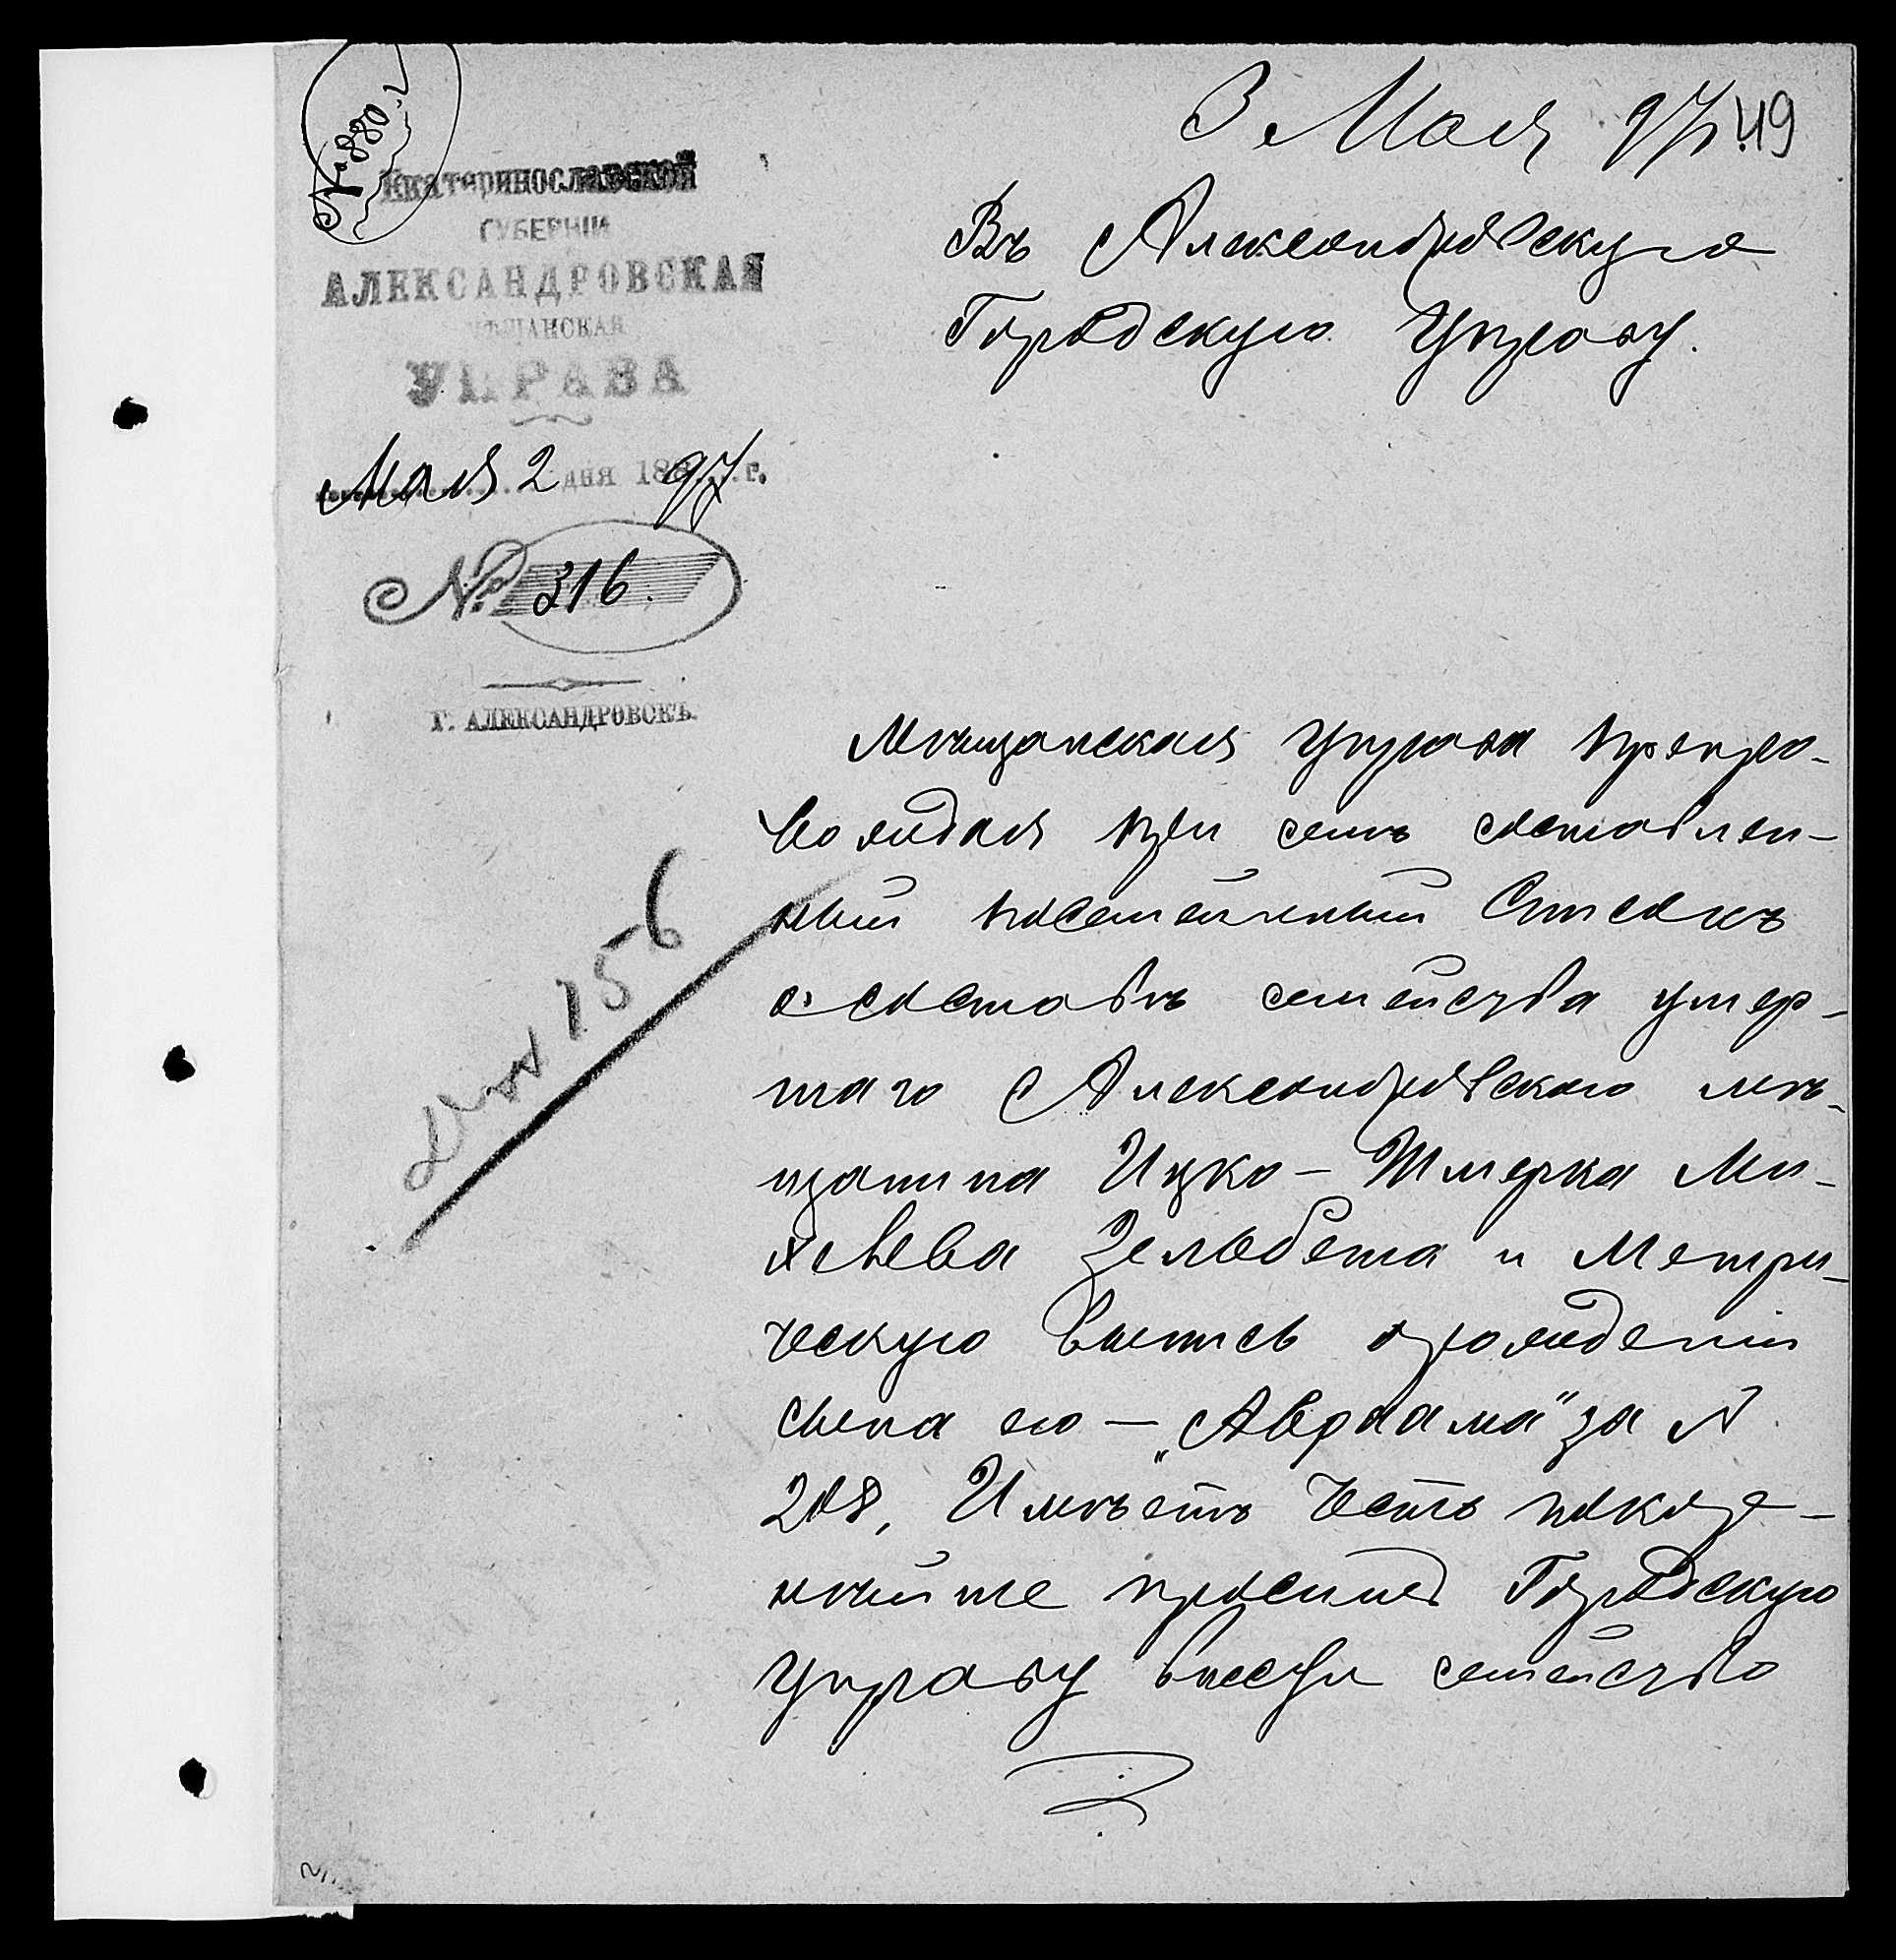 № 880
3 Мая 97 г. 49
Екатеринославской
ГУБЕРНІИ
АЛЕКСАНДРОВСКАЯ
МѢЩАНСКАЯ
УПРАВА
Мая 2 дня 1897 г.
№ 316.
Г. АЛЕКСАНДРОВСКЪ.
Въ Александровскую
Городскую Управу.
156
Мѣщанская Управа препро-
вождая при семъ составлен-
ный посемейный Списокъ
о составѣ семейства умер-
шаго Александровскаго мѣ-
щанина Ицко-Шмерка Ми-
хелева Зельбета и Метри-
ческую выпись о рожденіи
сына его — „Авраама" за №
208, Имѣетъ честь покор-
нѣйше просить Городскую
Управу внести семейство